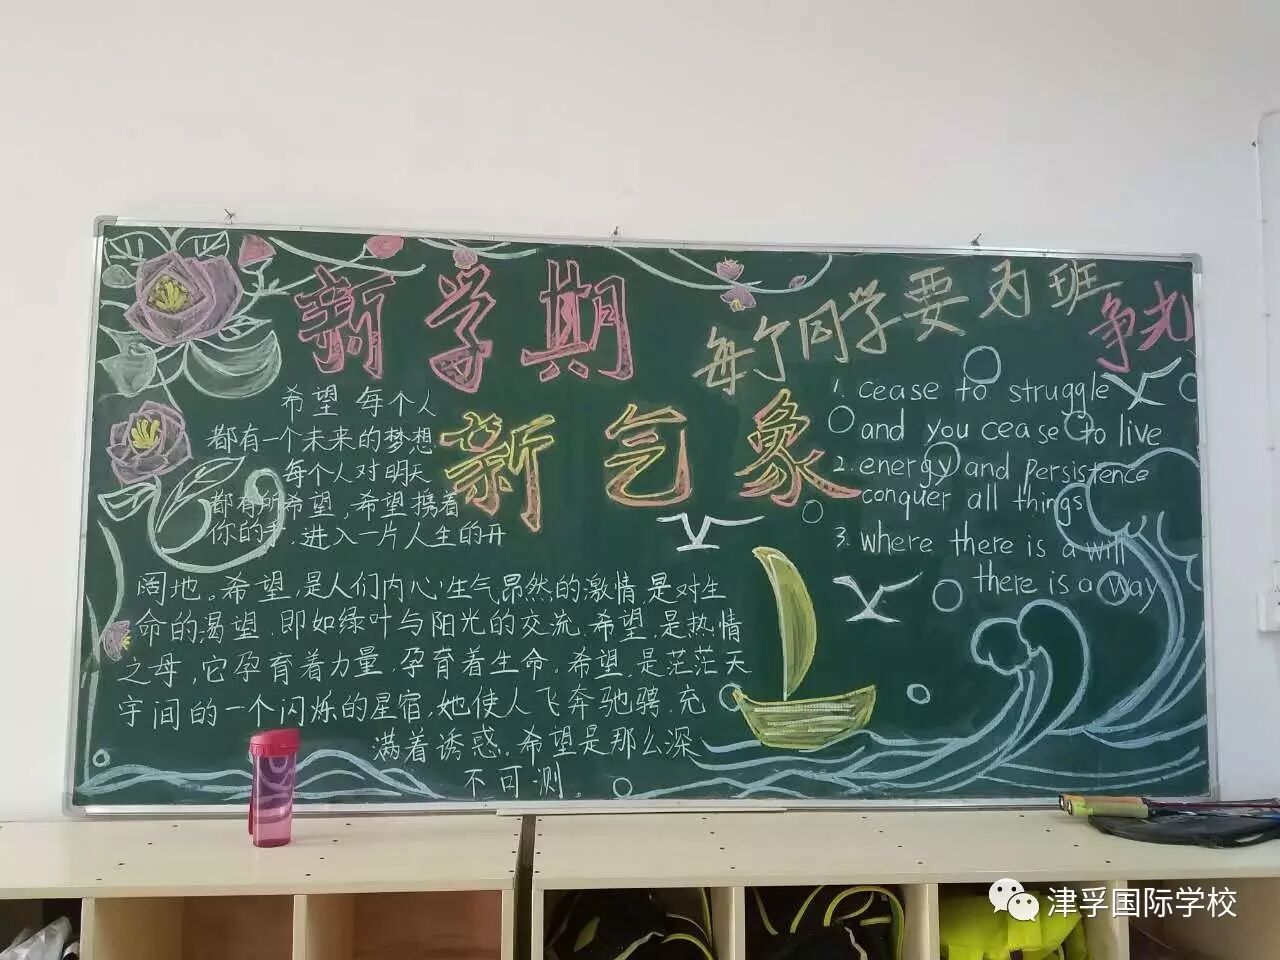 新学期
新气象
每个同学要为班
争光
希望 每个人
都有一个未来的梦想
每个人对明天
都有所希望，希望携着
你的手，进入一片人生的开
阔地。希望，是人们内心生气昂然的激情，是对生
命的渴望，即如绿叶与阳光的交流，希望，是热情
之母，它孕育着力量，孕育着生命。希望，是茫茫天
宇间的一个闪烁的星宿，她使人飞奔驰骋，充
满着诱惑。希望是那么深
不可测。
1. cease to struggle
and you cease to live
2. energy and persistence
conquer all things
3. where there is a will
there is a way
津孚国际学校